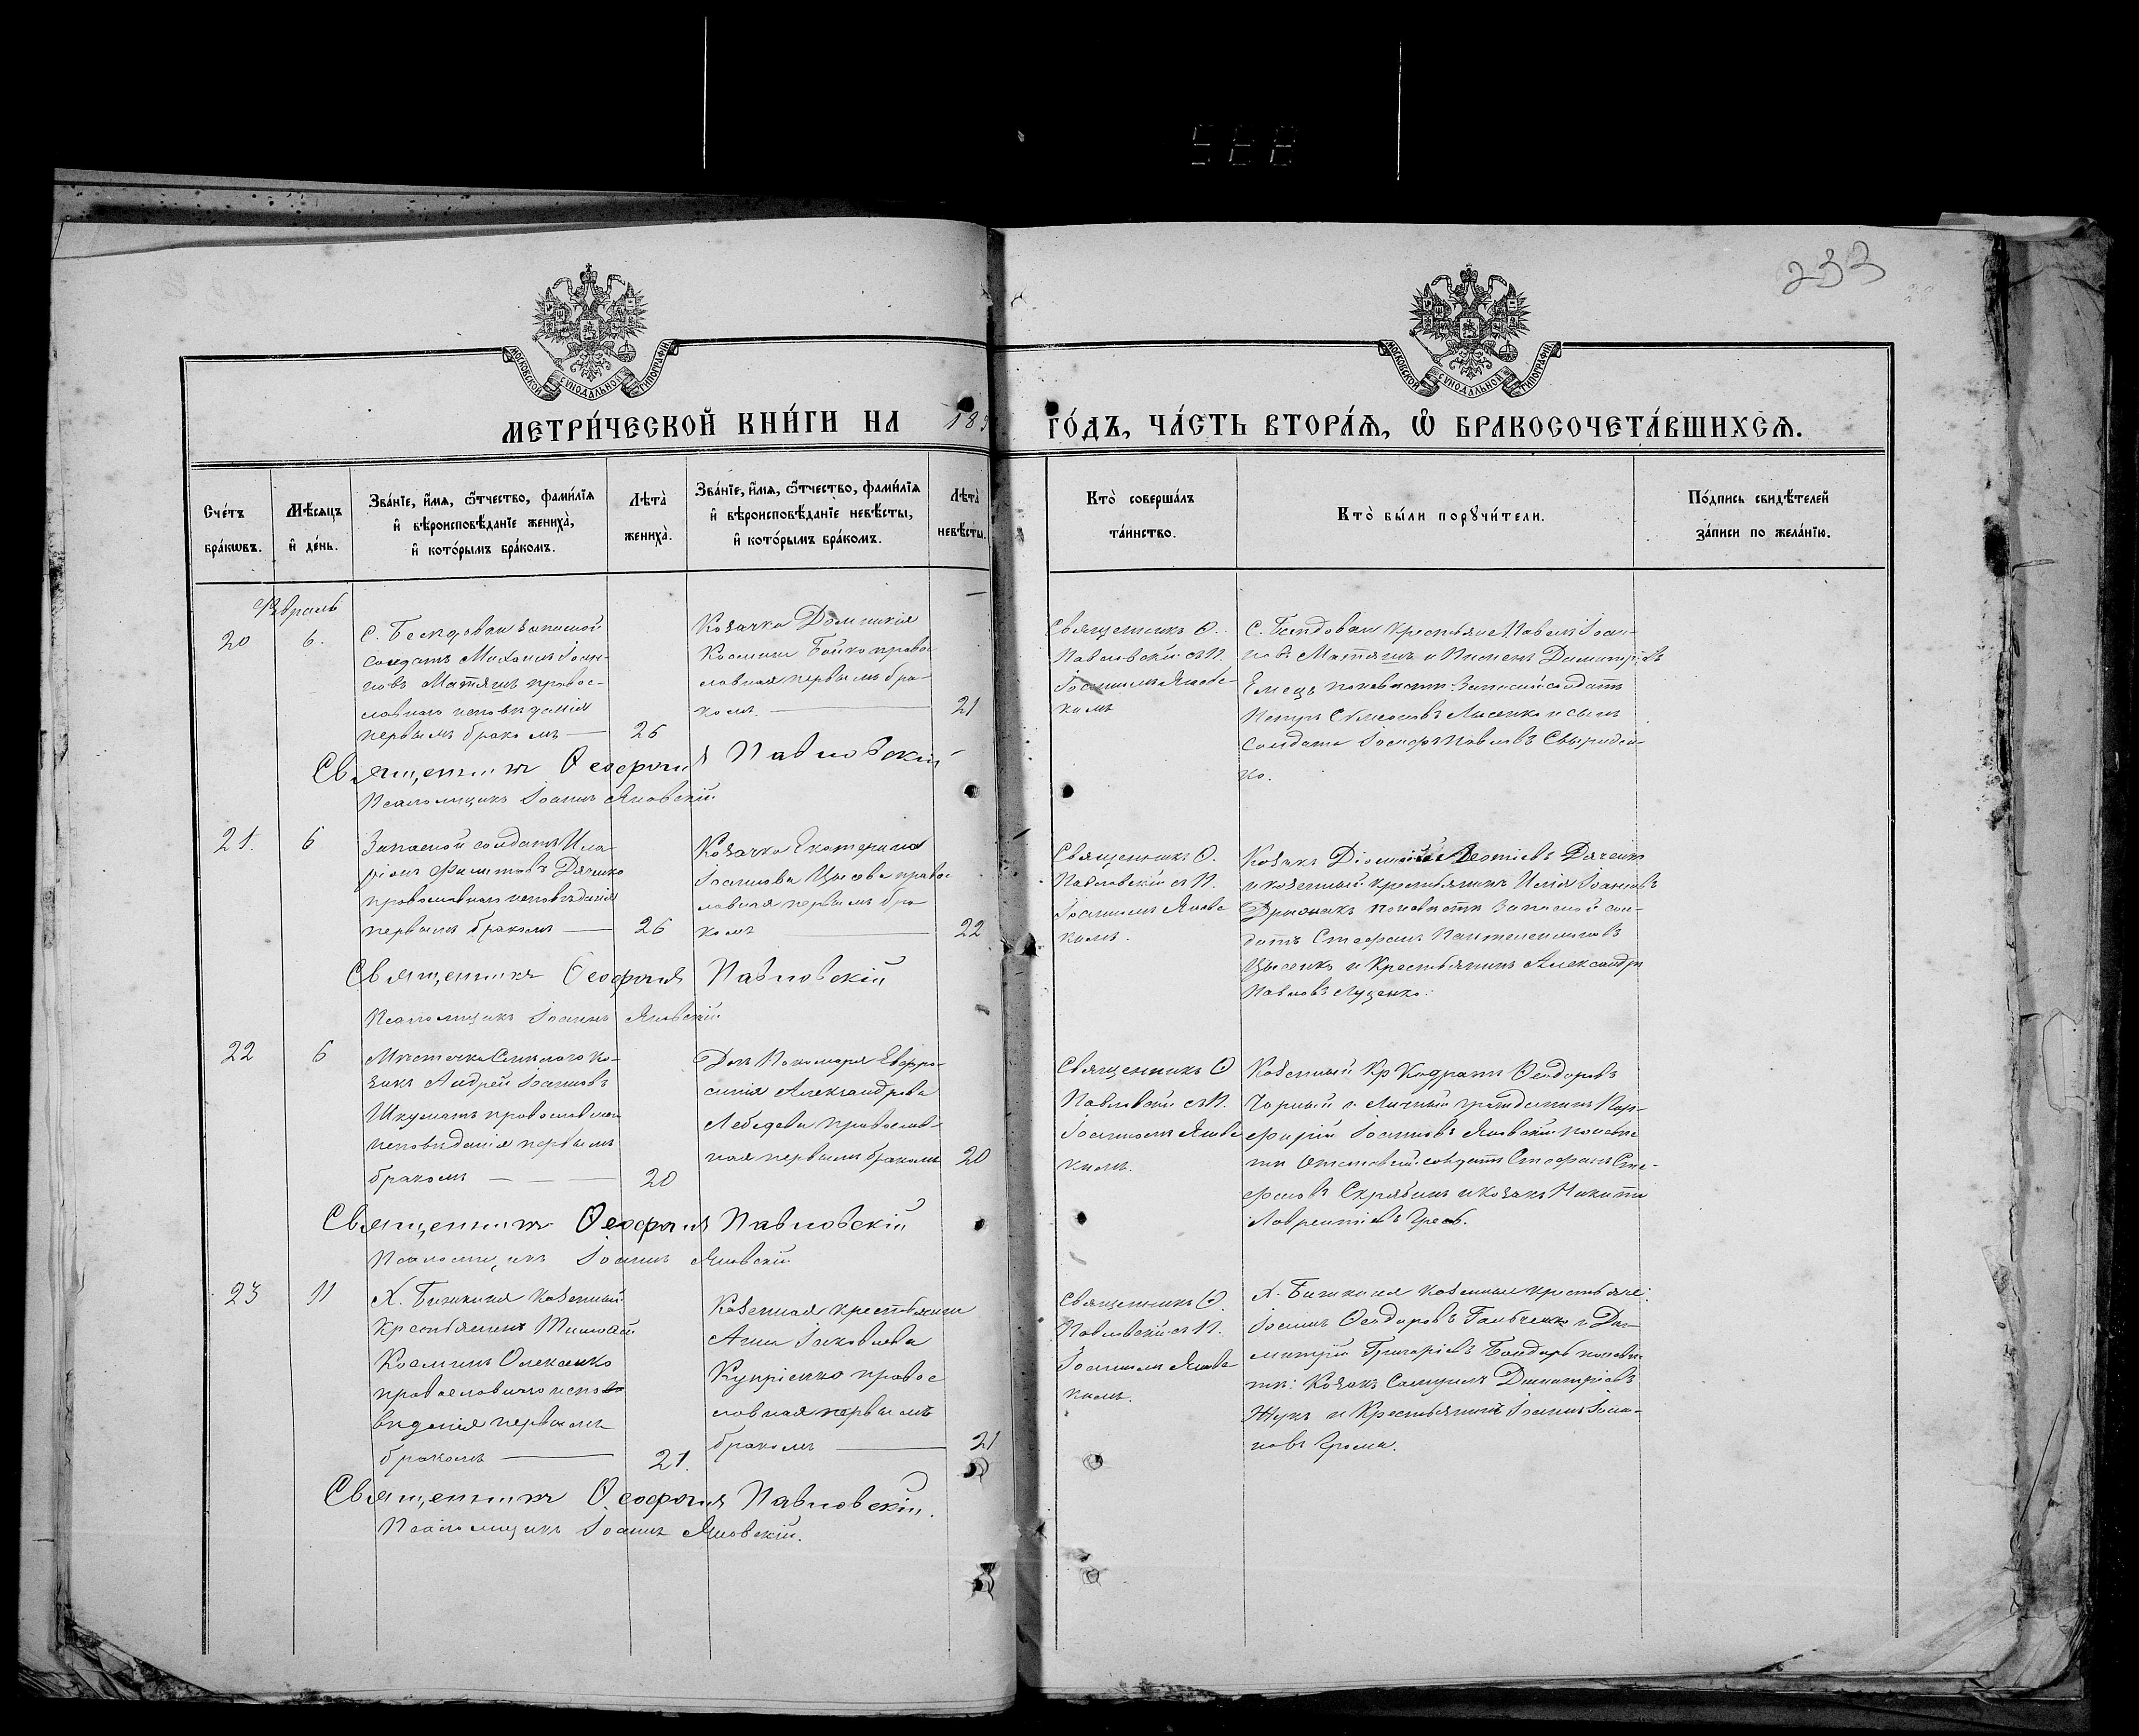 233
МОСКОВСКОЙ СУНОДАЛЬНОЙ ТИПОГРАФІИ
МОСКОВСКОЙ СУНОДАЛЬНОЙ ТИПОГРАФІИ
МЕТРИ́ЧЕСКОЙ КНИ́ГИ НА 189
ГО́ДЪ, ЧА́СТЬ ВТОРА́Я, Ѡ БРАКОСОЧЕТА́ВШИХСЯ.
Сче́тъ бра́кѡвъ.
Мѣ́сяцъ и҆ де́нь.
Зва́нїе, и҆́мя, ѻ҆́тчество, фами́лїя
и҆ вѣроисповѣ́данїе жениха̀,
и҆ кото́рымъ бра́комъ.
Лѣта̀
жениха̀.
Зва́нїе, и҆́мя, ѻ҆́тчество, фами́лїя
и҆ вѣроисповѣ́данїе невѣ́сты,
и҆ кото́рымъ бра́комъ.
Лѣта̀
невѣ́сты.
Кто̀ соверша́лъ
та́инство.
Кто̀ бы́ли порꙋчи́тели.
По́дпись свидѣ́телей
за́писи по жела́нїю.
Февраль
20
6.
С. запасной
солдатъ Михаилъ Іоан-
новъ Матяшъ правос-
лавнаго исповѣданія
первымъ бракомъ
26
Козачка Домникія
Космина Бойко право
славная первымъ бра-
комъ.
21
Священникъ Ѳ.
Павловскій съ П.
Іоанномъ Яновс
кимъ
С. крестьяне Павелъ Іоан-
новъ Матяшъ и Пименъ Димитріевъ
Емецъ по невѣсти: Запасной солдатъ
Петръ Лысенко и сынъ
солдата Іосифъ Павловъ Свириден-
ко.
Священникъ Ѳеофилъ Павловскій
Псаломщикъ Іоаннъ Яновскій
21.
6
Запасной солдатъ Ила-
ріонъ Филиповъ Дяченко
православнаго исповѣданія
первымъ бракомъ
26
Козачка Екатерина
Іоаннова право
славная первымъ бра
комъ
22
Священникъ Ѳ.
Павловскій съ П.
Іоанномъ Яновс
кимъ.
Козакъ Леонтіевъ Дяченко
и козенный крестьянинъ Илія Іоанновъ
по невѣсти запасной сол-
датъ Стефанъ Пантелеимоновъ
и крестьянинъ Александръ
Павловъ Луценко.
Священникъ Ѳеофилъ Павловскій
Псаломщикъ Іоаннъ Яновскій
22
6
Мѣстечка ко-
закъ Андрей Іоанновъ
Шкуратъ православнаго
исповѣданія первымъ
бракомъ
20
Дочь Пономаря Евфро-
синія Александрова
Лебедева православ-
ная первымъ бракомъ
20
Священникъ Ѳ
Павловскій съ П.
Іоанномъ Яновс
кимъ.
Козенный Кр Кодратъ Ѳеодоровъ
Чорный и личный гражданинъ Пор-
фирій Іоанновъ Яновскій по невѣс
ти Отставный солдатъ Стефанъ Сте-
фановъ Скрябинъ и козакъ Никита
Лаврентіевъ
Священникъ Ѳеофилъ Павловскій
Псаломщикъ Іоаннъ Яновскій
23
11
Х. козенный
крестьянинъ Тимофей
Косминъ Олексенко
православнаго испо
вѣданія первымъ
бракомъ
21.
Козенная крестьянка
Анна Іаковлева
Купріенко правос
лавная первымъ
бракомъ
21
Священникъ Ѳ.
Павловскій съ П.
Іоанномъ Яновс
кимъ.
Х. козенные крестьяне:
Іоаннъ Ѳеодоровъ и Ди-
митрій Григоріевъ Бондарь по невѣс
ти: Козакъ Самуилъ Димитріевъ
Жукъ и крестьянинъ Іоаннъ Іоан-
новъ
Священникъ Ѳеофилъ Павловскій.
Псаломщикъ Іоаннъ Яновскій.